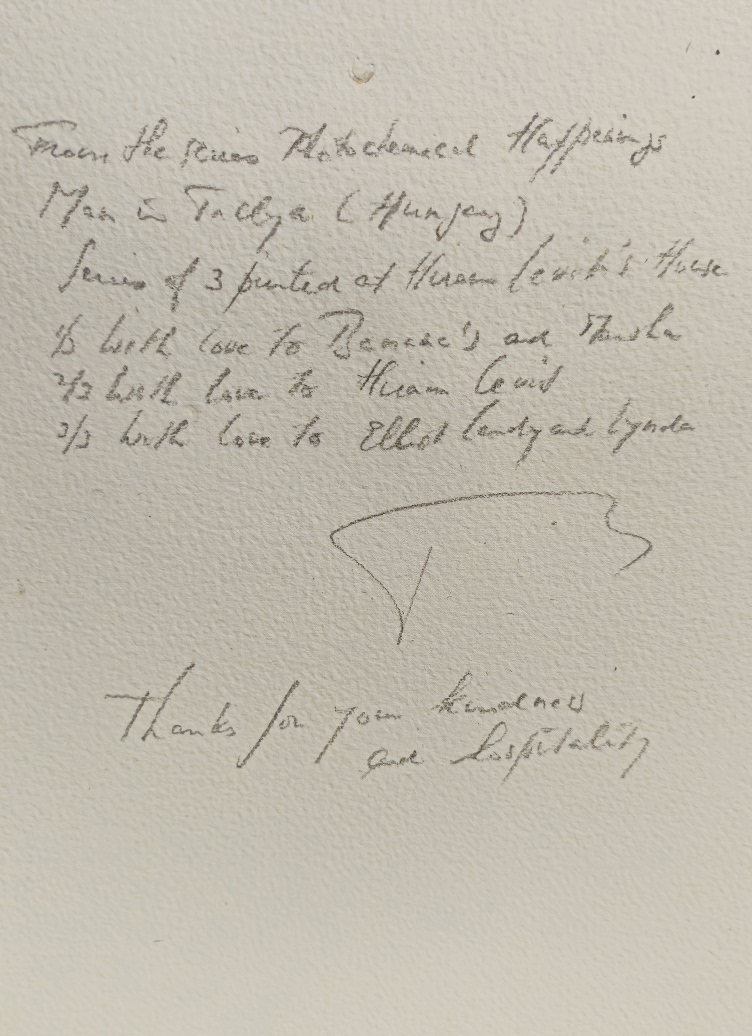 From the series Photochemical Happenings
Man in Tállya (Hungary)
Series of 3 printed at Hiram Levit's House
1/3 with love to and
2/3 with love to Hiram Levit
3/3 with love to Elliot Landy and Lynda
Thanks for your kindness
and hospitality